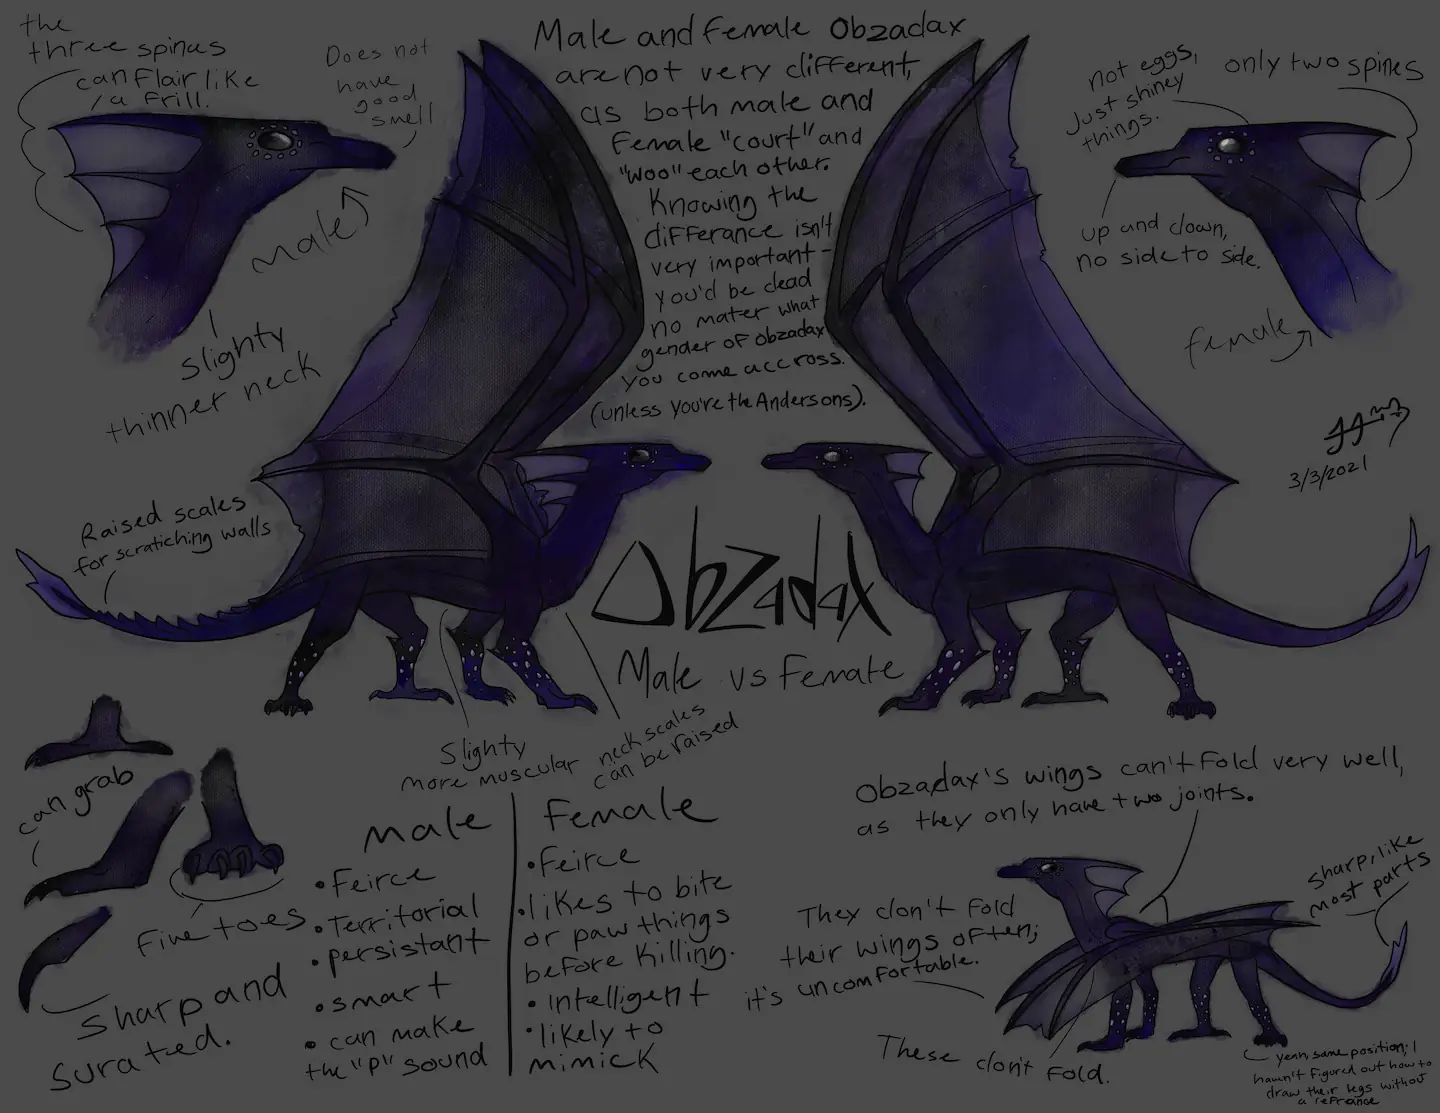 the
three spines
can flair like
a frill.
Does not
have
good
smell
male
slighty
thinner neck
Male and Female Obzadax
are not very different,
as both male and
Female "court" and
"woo" each other.
Knowing the
differance isn't
very important-
you'd be dead
no mater what
gender of Obzadax
you come accross.
(unless you're the Andersons).
not eggs,
just shiney
things.
only two spines
up and down,
no side to side.
female
3/3/2021
Raised scales
for scratiching walls
Obzadax
Male vs Female
Slighty
more muscular
neck scales
can be raised
can grab
five toes
sharp and
surated.
male
• Feirce
• Territorial
• persistant
• smart
• can make
the "P" sound
Female
• Feirce
• likes to bite
or paw things
before killing.
• Intelligent
• likely to
mimick
Obzadax's wings can't fold very well,
as they only have two joints.
They don't fold
their wings often;
it's uncomfortable.
These don't fold.
sharp, like
most parts
yeah, same position; I
haven't figured out how to
draw their legs without
a refrance